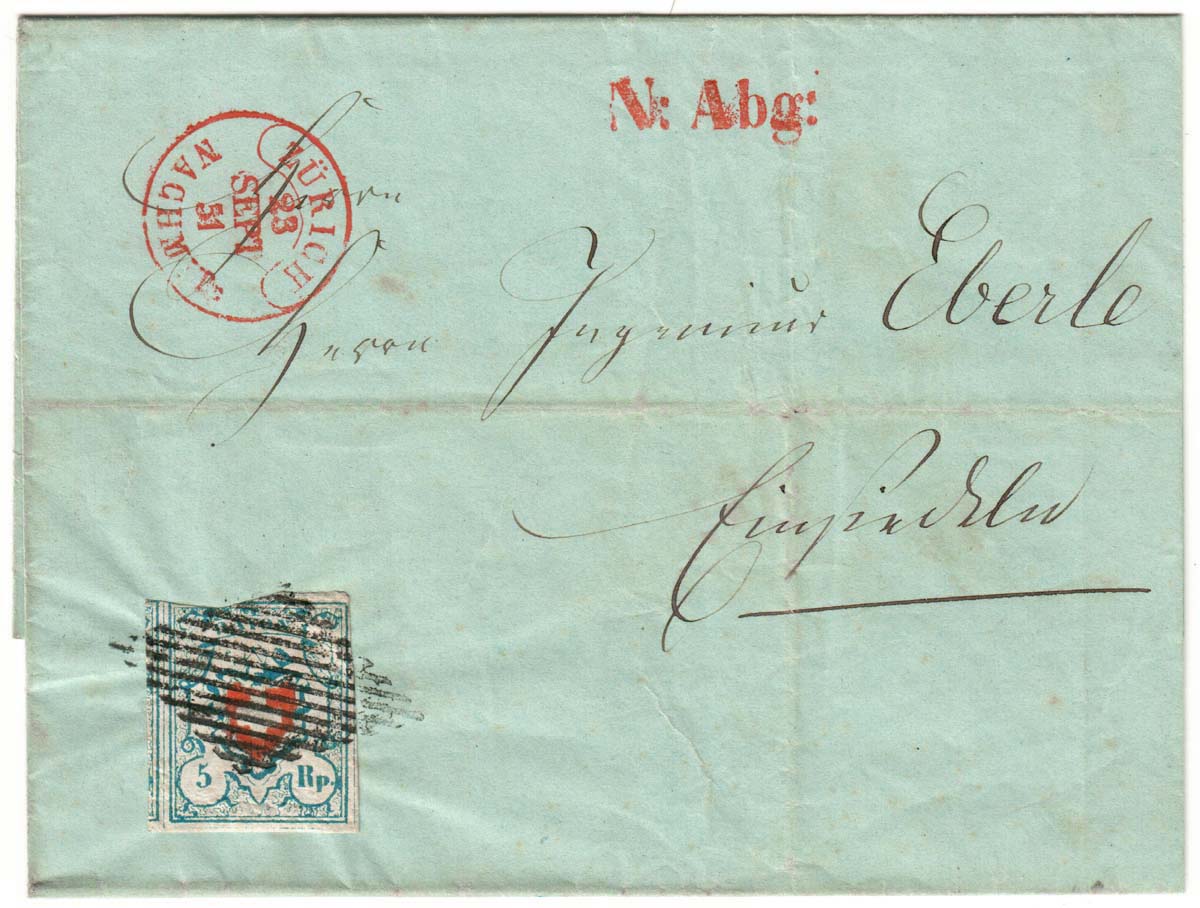 N: Abg:
ZÜRICH
23
SEPT
51
NACHM.
Herrn
Herrn Ingenieur Eberle
Einsiedeln
5 Rp.